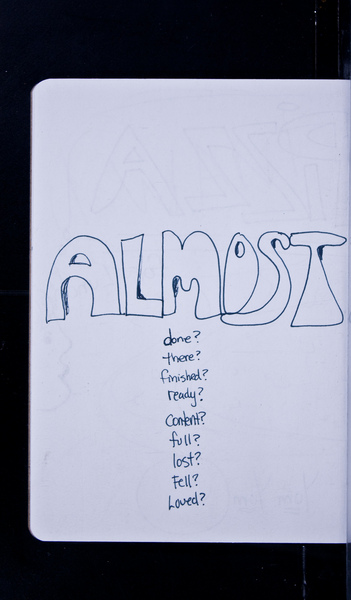 ALMOST
done?
there?
finished?
ready?
Content?
full?
lost?
Fell?
Loved?